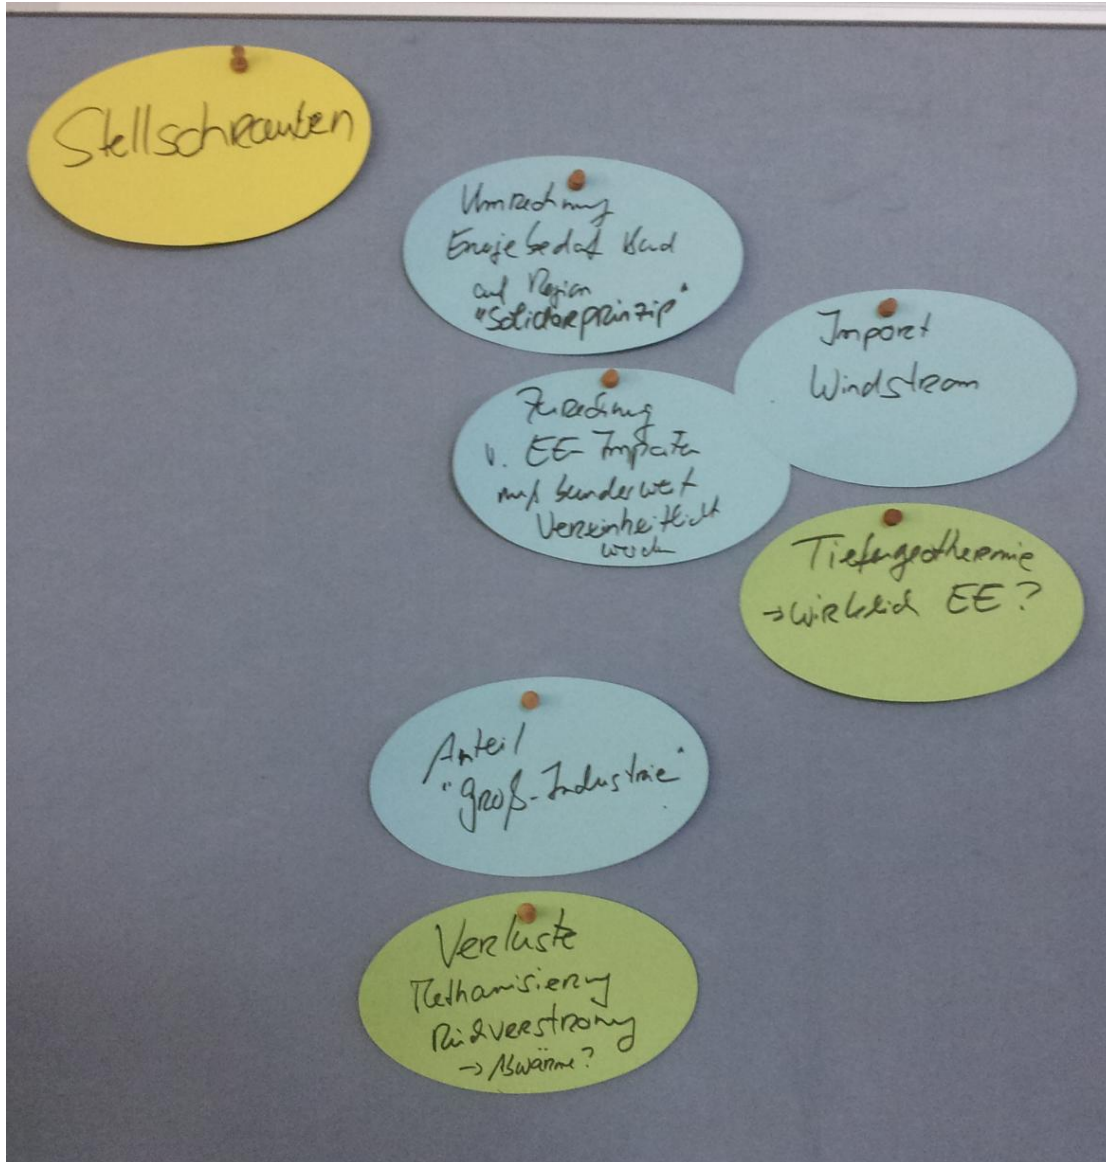 Stellschrauben
Umrechnung
Energiebedarf Bund
auf Region
"Solidarprinzip"
Import
Windstrom
Zurechnung
v. EE-Importen
muß bundesweit
Vereinheitlicht
werden
Tiefengeothermie
→ wirklich EE?
Anteil
"Groß-Industrie"
Verluste
Methanisierung
Rückverstromung
→ Abwärme?